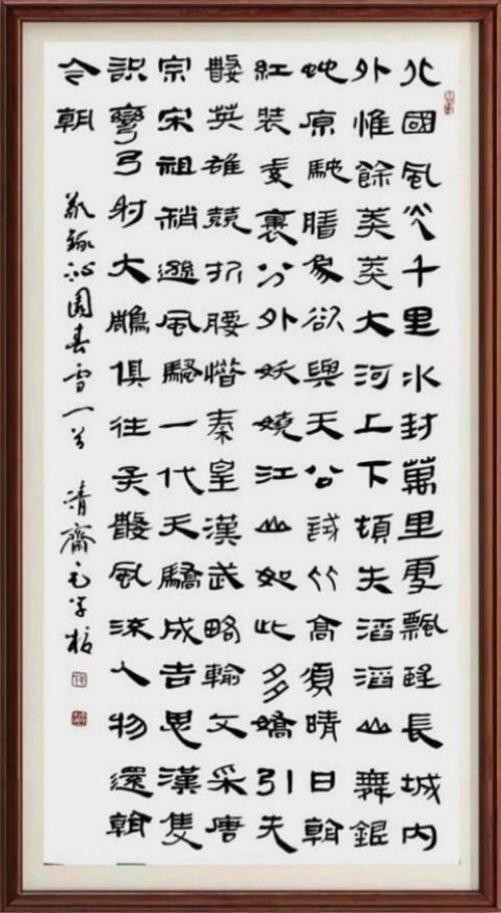 北國風光千里冰封萬里雪飄望長城内
外惟餘莽莽大河上下頓失滔滔山舞銀
蛇原馳腊象欲與天公試比高須晴日看
紅裝素裹分外妖嬈江山如此多嬌引无
數英雄競折腰惜秦皇漢武略輸文采唐
宗宋祖稍遜風騷一代天驕成吉思漢隻
識彎弓射大鵰俱往矣數風流人物還看
今朝 敬錄沁園春雪一首 清齋